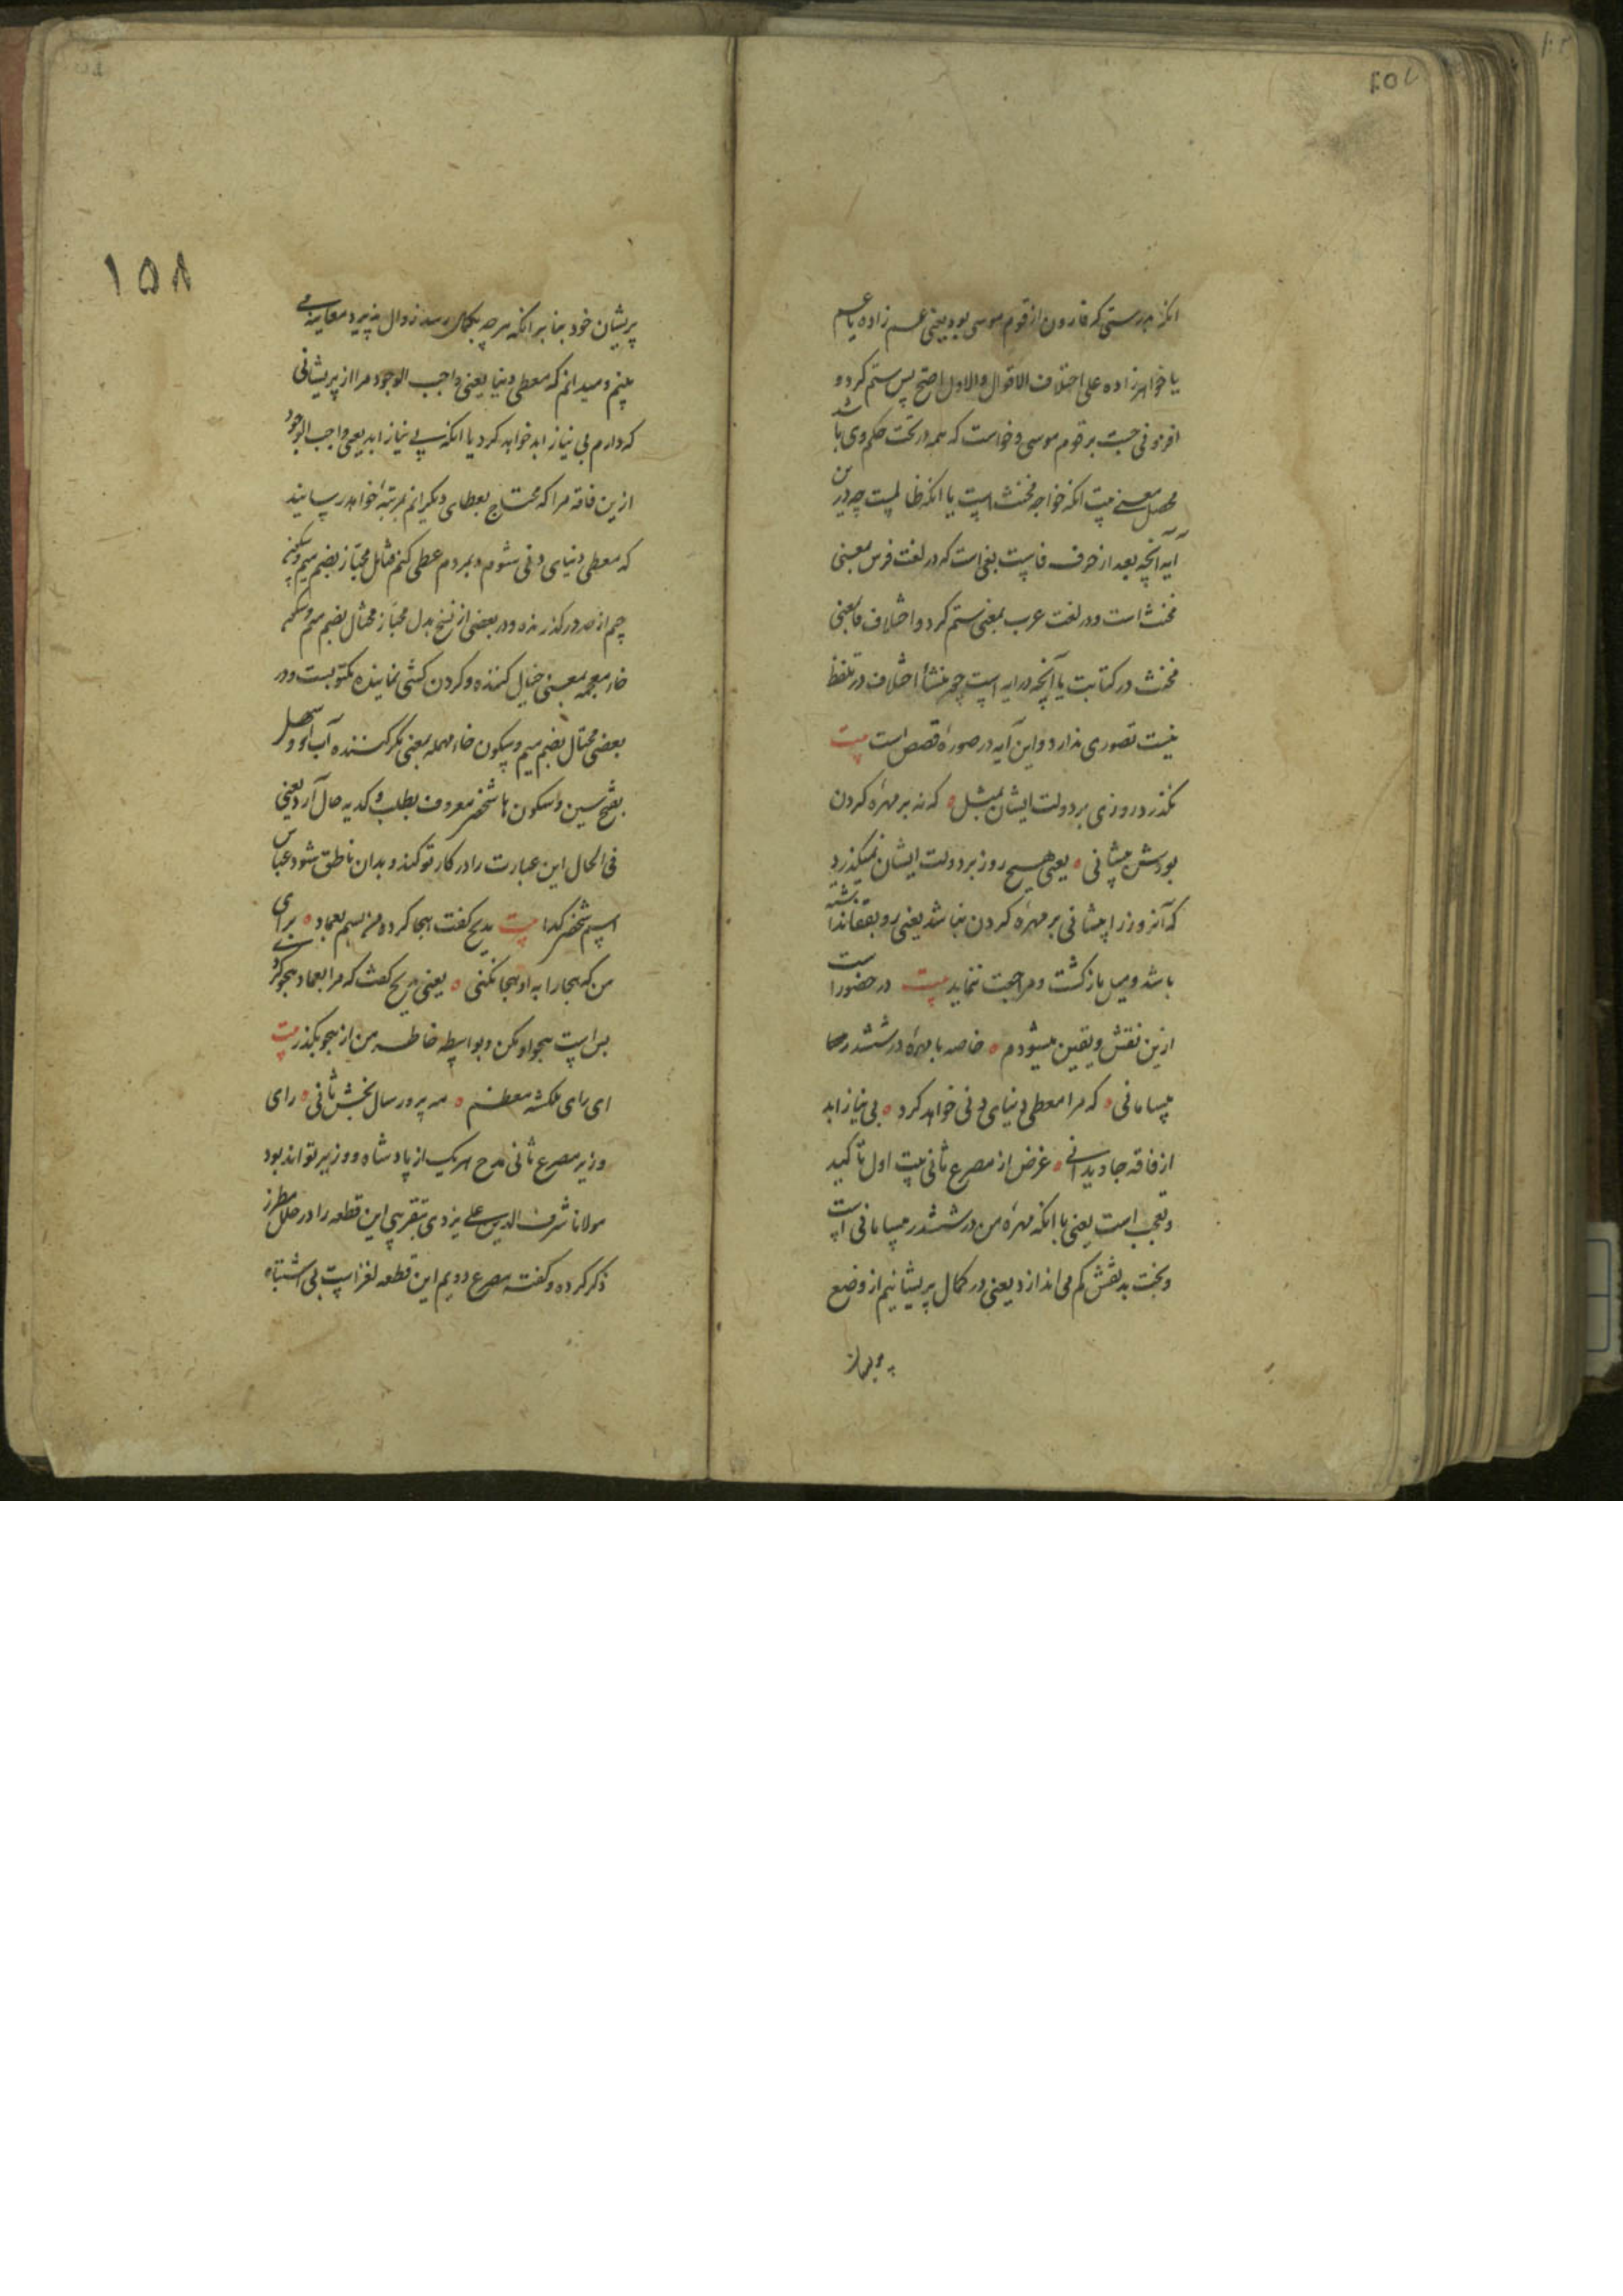 انکه بدرستی که قارون از قوم موسی بود یعنی عم زاده یا عم
یا خواهرزاده علی اختلاف الاقوال والاول اصح پس ستم کرد و
افزونی جست بر قوم موسی و خواست که همه در تحت حکم وی باشد
محصل معنی بیت انکه خواجه مخنث است یا انکه ظالمست چه درین
آیه آنچه بعد از حرف فاست بغی است که در لغت فرس بمعنی
مخنث است و در لغت عرب بمعنی ستم کرد و اختلاف ما بمعنی
مخنث در کتابت یا آنچه در ایه است چه منشأ اختلاف در تلفظ
نیست قصوری ندارد و این آیه در صورهٔ قصص است بیت
نکذرد روزی بر دولت ایشان بمثل ه که نه بر مهره کردن
بودش پیشانی ه یعنی هیچ روز بر دولت ایشان نمیکذرد
که آنروز را پیشانی بر مهره کردن نباشد یعنی رو بقفا نداشته
باشد و میل بازکشت و مراجعت ننماید بیت در حضور است
ازین نقش و یقین میشودم ه خاصه با مهرهٔ در ششدر
بیسامانی ه که مرا معطی دنیای دنی خواهد کرد ه بی نیاز ابد
از فاقه جاویدانی ه غرض از مصرع ثانی بیت اول تأکید
و تعجب است یعنی با انکه مهرهٔ من در ششدر بیسامانی است
و بخت بد نقش کم می اندازد یعنی در کمال پریشانیم از وضع
۱۵۸
پریشان خود بنابر انکه هرچه بکمال رسد زوال پذیرد معاینه می
بینم و میدانم که معطی دنیا یعنی واجب الوجود مرا از پریشانی
که دارم بی نیاز ابد خواهد کرد یا انکه بی نیاز ابد یعنی واجب الوجود
ازین فاقه مرا که محتاج بعطای دیکرانم بمرتبهٔ خواهد رسانید
که معطی دنیای دنی شوم و بمردم عطی کنم مثال مجتاز بضم میم و سکون
جیم از حد درکذرنده و در بعضی از نسخ بدل مجتاز مختال بضم میم و سکون
خاء معجمه بمعنی خیال کننده و کردن کشی نماینده مکتوبست و در
بعضی محتال بضم میم و سکون حاء مهمله بمعنی مکر کننده آب او و سهل
بفتح سین و سکون ها شخص معروف بطلب و کدیه حال آرد یعنی
فی الحال این عبارت را در کار تو کند و بدان ناطق شود عباس
اسم شخص کدا بیت بدیع کفت هجا کرد بعماد ه برای
من که هجا را به او هجا نکنی ه یعنی بدیع کفت که مرا بعماد هجو کردی
بس است هجو او مکن و بواسطه خاطر من از هجو بکذر بیت
ای رای ملکشه معظم ه مه پرور سال بخش ثانی ه رای
وزیر مصرع ثانی مدح هریک از پادشاه و وزیر تواند بود
مولانا شرف الدین علی یزدی بتقریبی این قطعه را در حلل مطرز
ذکر کرده و کفته مصرع دویم این قطعه لغز است بی اشتباه